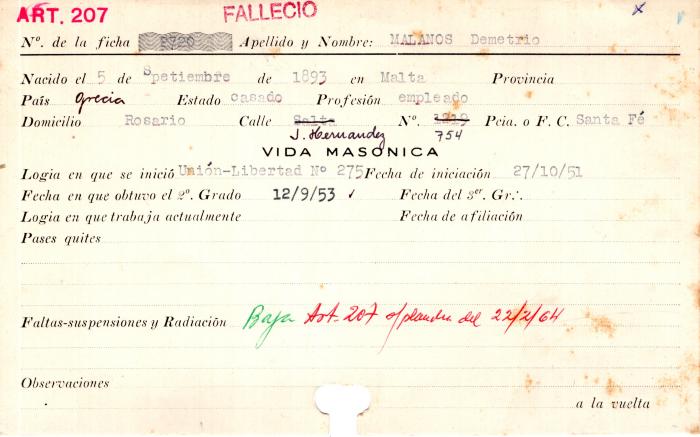 ART. 207 FALLECIO x
Nº. de la ficha Apellido y Nombre: MALANOS Demetrio
Nacido el 5 de Spetiembre de 1893 en Malta Provincia
País grecia Estado casado Profesión empleado
Domicilio Rosario Calle Salta Nº. 1219 Pcia. o F. C. Santa Fé
J. Hernandez 754
VIDA MASONICA
Logia en que se inició Unión-Libertad Nº 275 Fecha de iniciación 27/10/51
Fecha en que obtuvo el 2º. Grado 12/9/53 ✓ Fecha del 3er. Gr∴
Logia en que trabaja actualmente Fecha de afiliación
Pases quites
Faltas-suspensiones y Radiación Baja Art. 207 del 22/2/64
Observaciones
a la vuelta